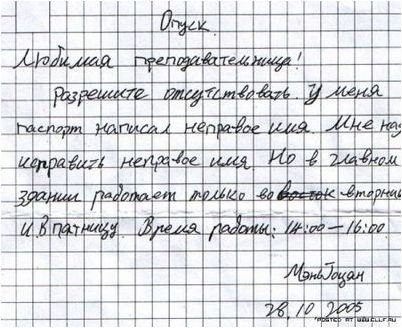 Опуск.
Любимая преподавательница!
Разрешите отсутствовать. У меня
паспорт написал неправое имя. Мне над
исправить неправое имя. Но в главном
здании работает только во восток вторник
и в патницу. Время работы: 14:00–16:00
МэньГоцан
28.10 2005
POSTED AT WWW.ELLF.RU